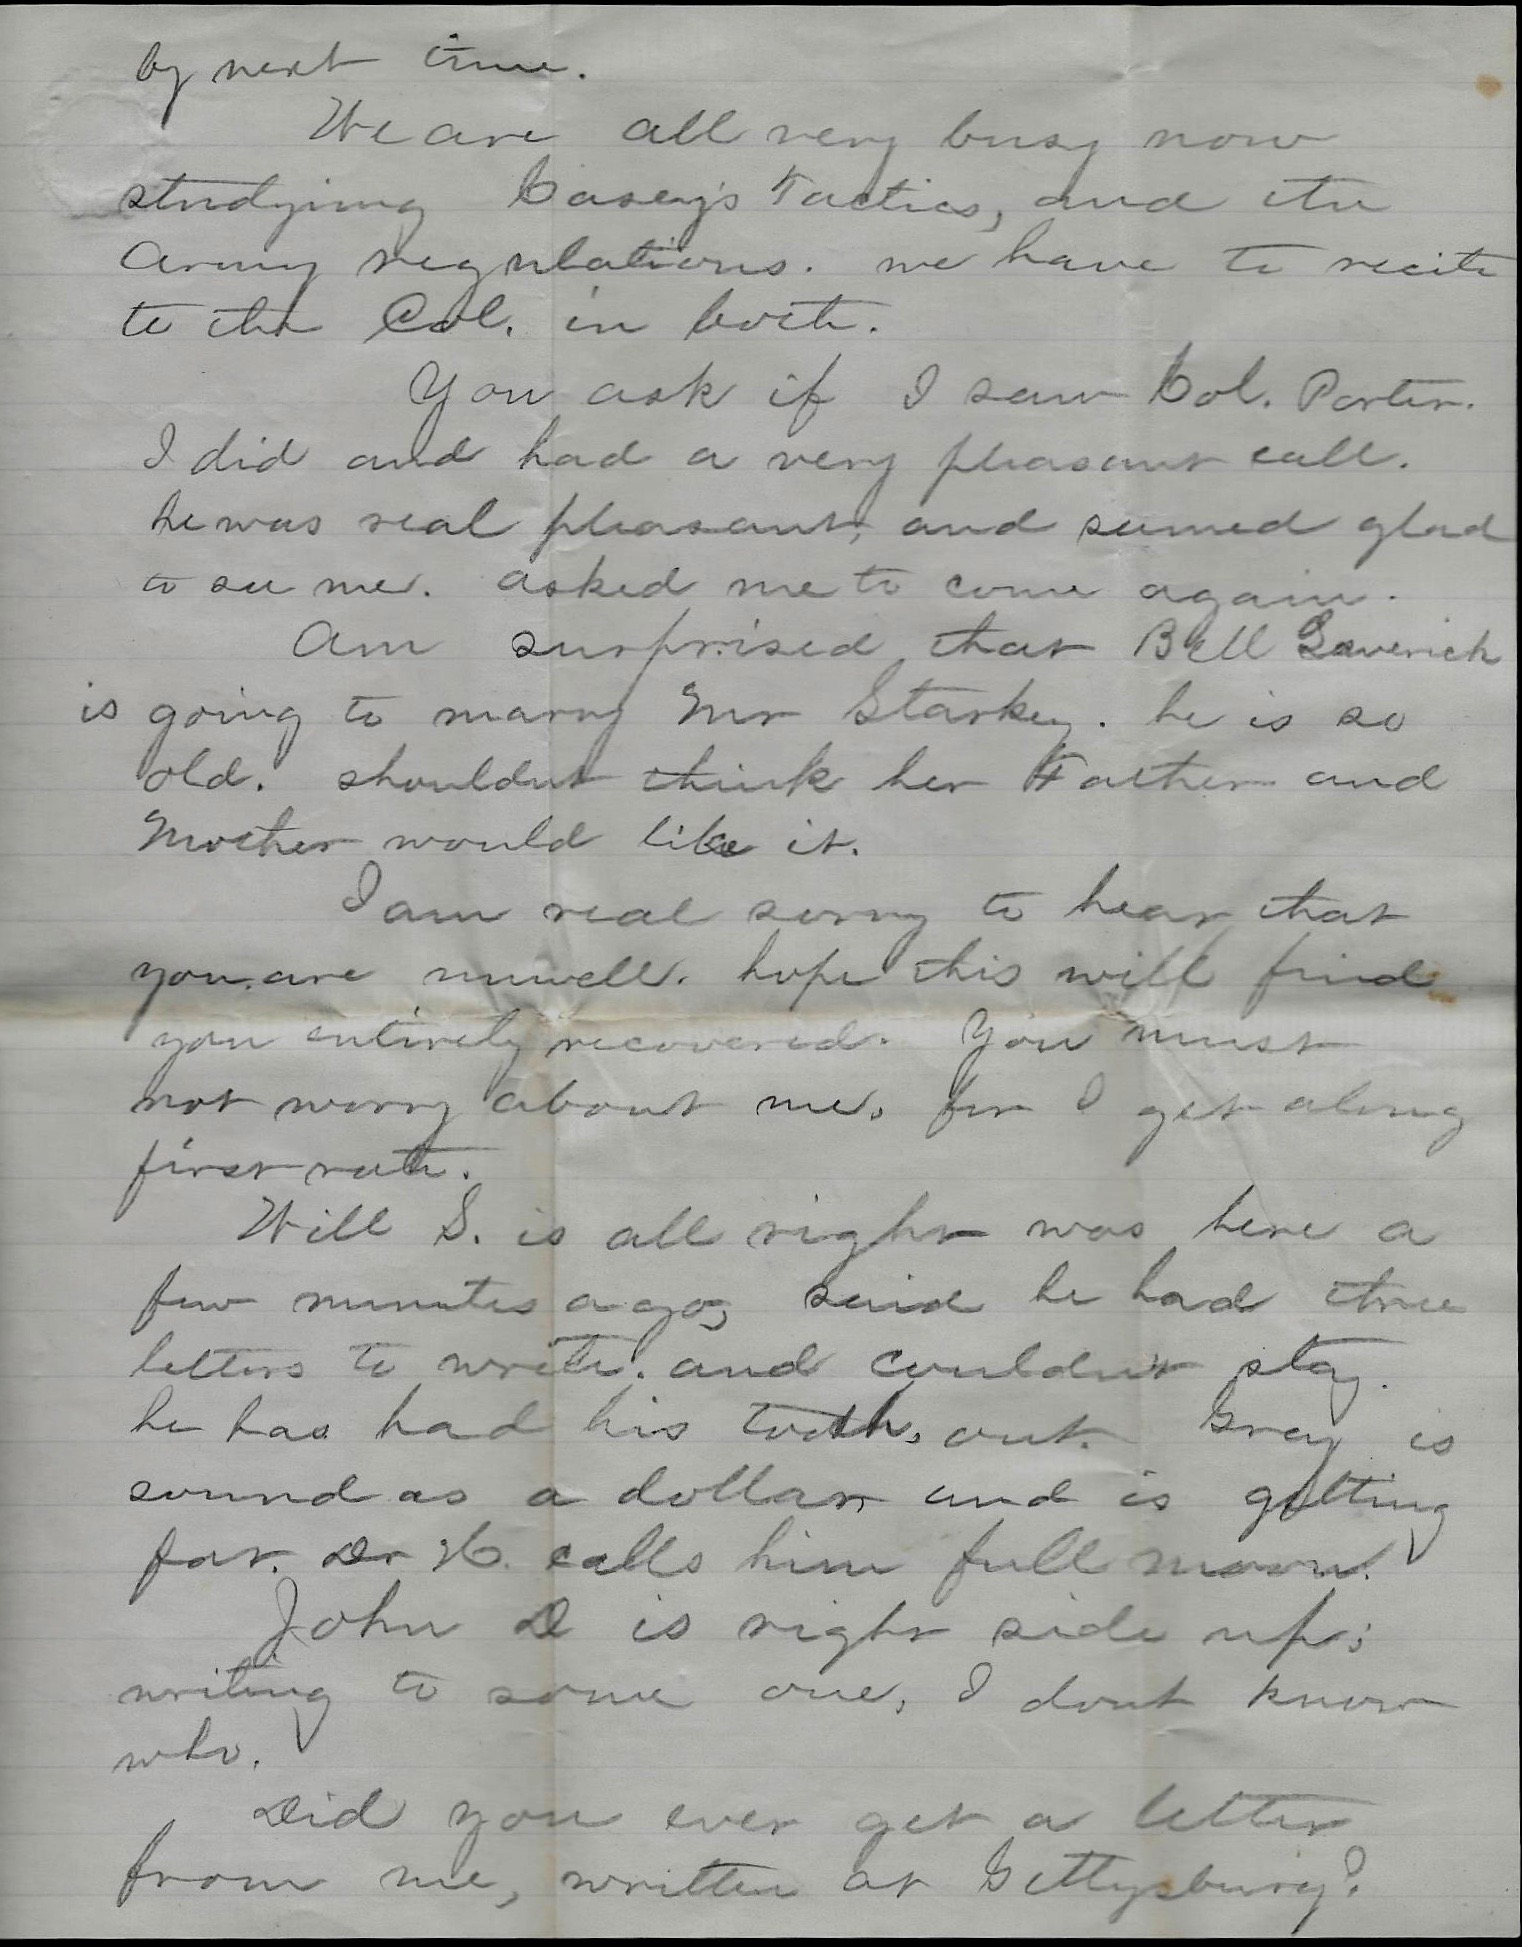 by next time.
We are all very busy now
studying Casey's Tactics, and the
Army regulations. we have to recite
to the Col. in both.
You ask if I saw Col. Porter.
I did and had a very pleasant call.
he was real pleasant, and seemed glad
to see me. asked me to come again.
Am surprised that Bell
is going to marry Mr Starkey. he is so
old. shouldnt think her Father and
Mother would like it.
I am real sorry to hear that
you are unwell. hope this will find
you entirely recovered. You must
not worry about me, for I get along
first rate.
Will S. is all right was here a
few minutes ago, said he had three
letters to write. and couldn't stay.
he has had his tooth, out. Gray is
sound as a dollar, and is getting
fat. Dr H. calls him full moon.
John D is right side up;
writing to some one, I dont know
who.
Did you ever get a letter
from me, written at Gettysburg?